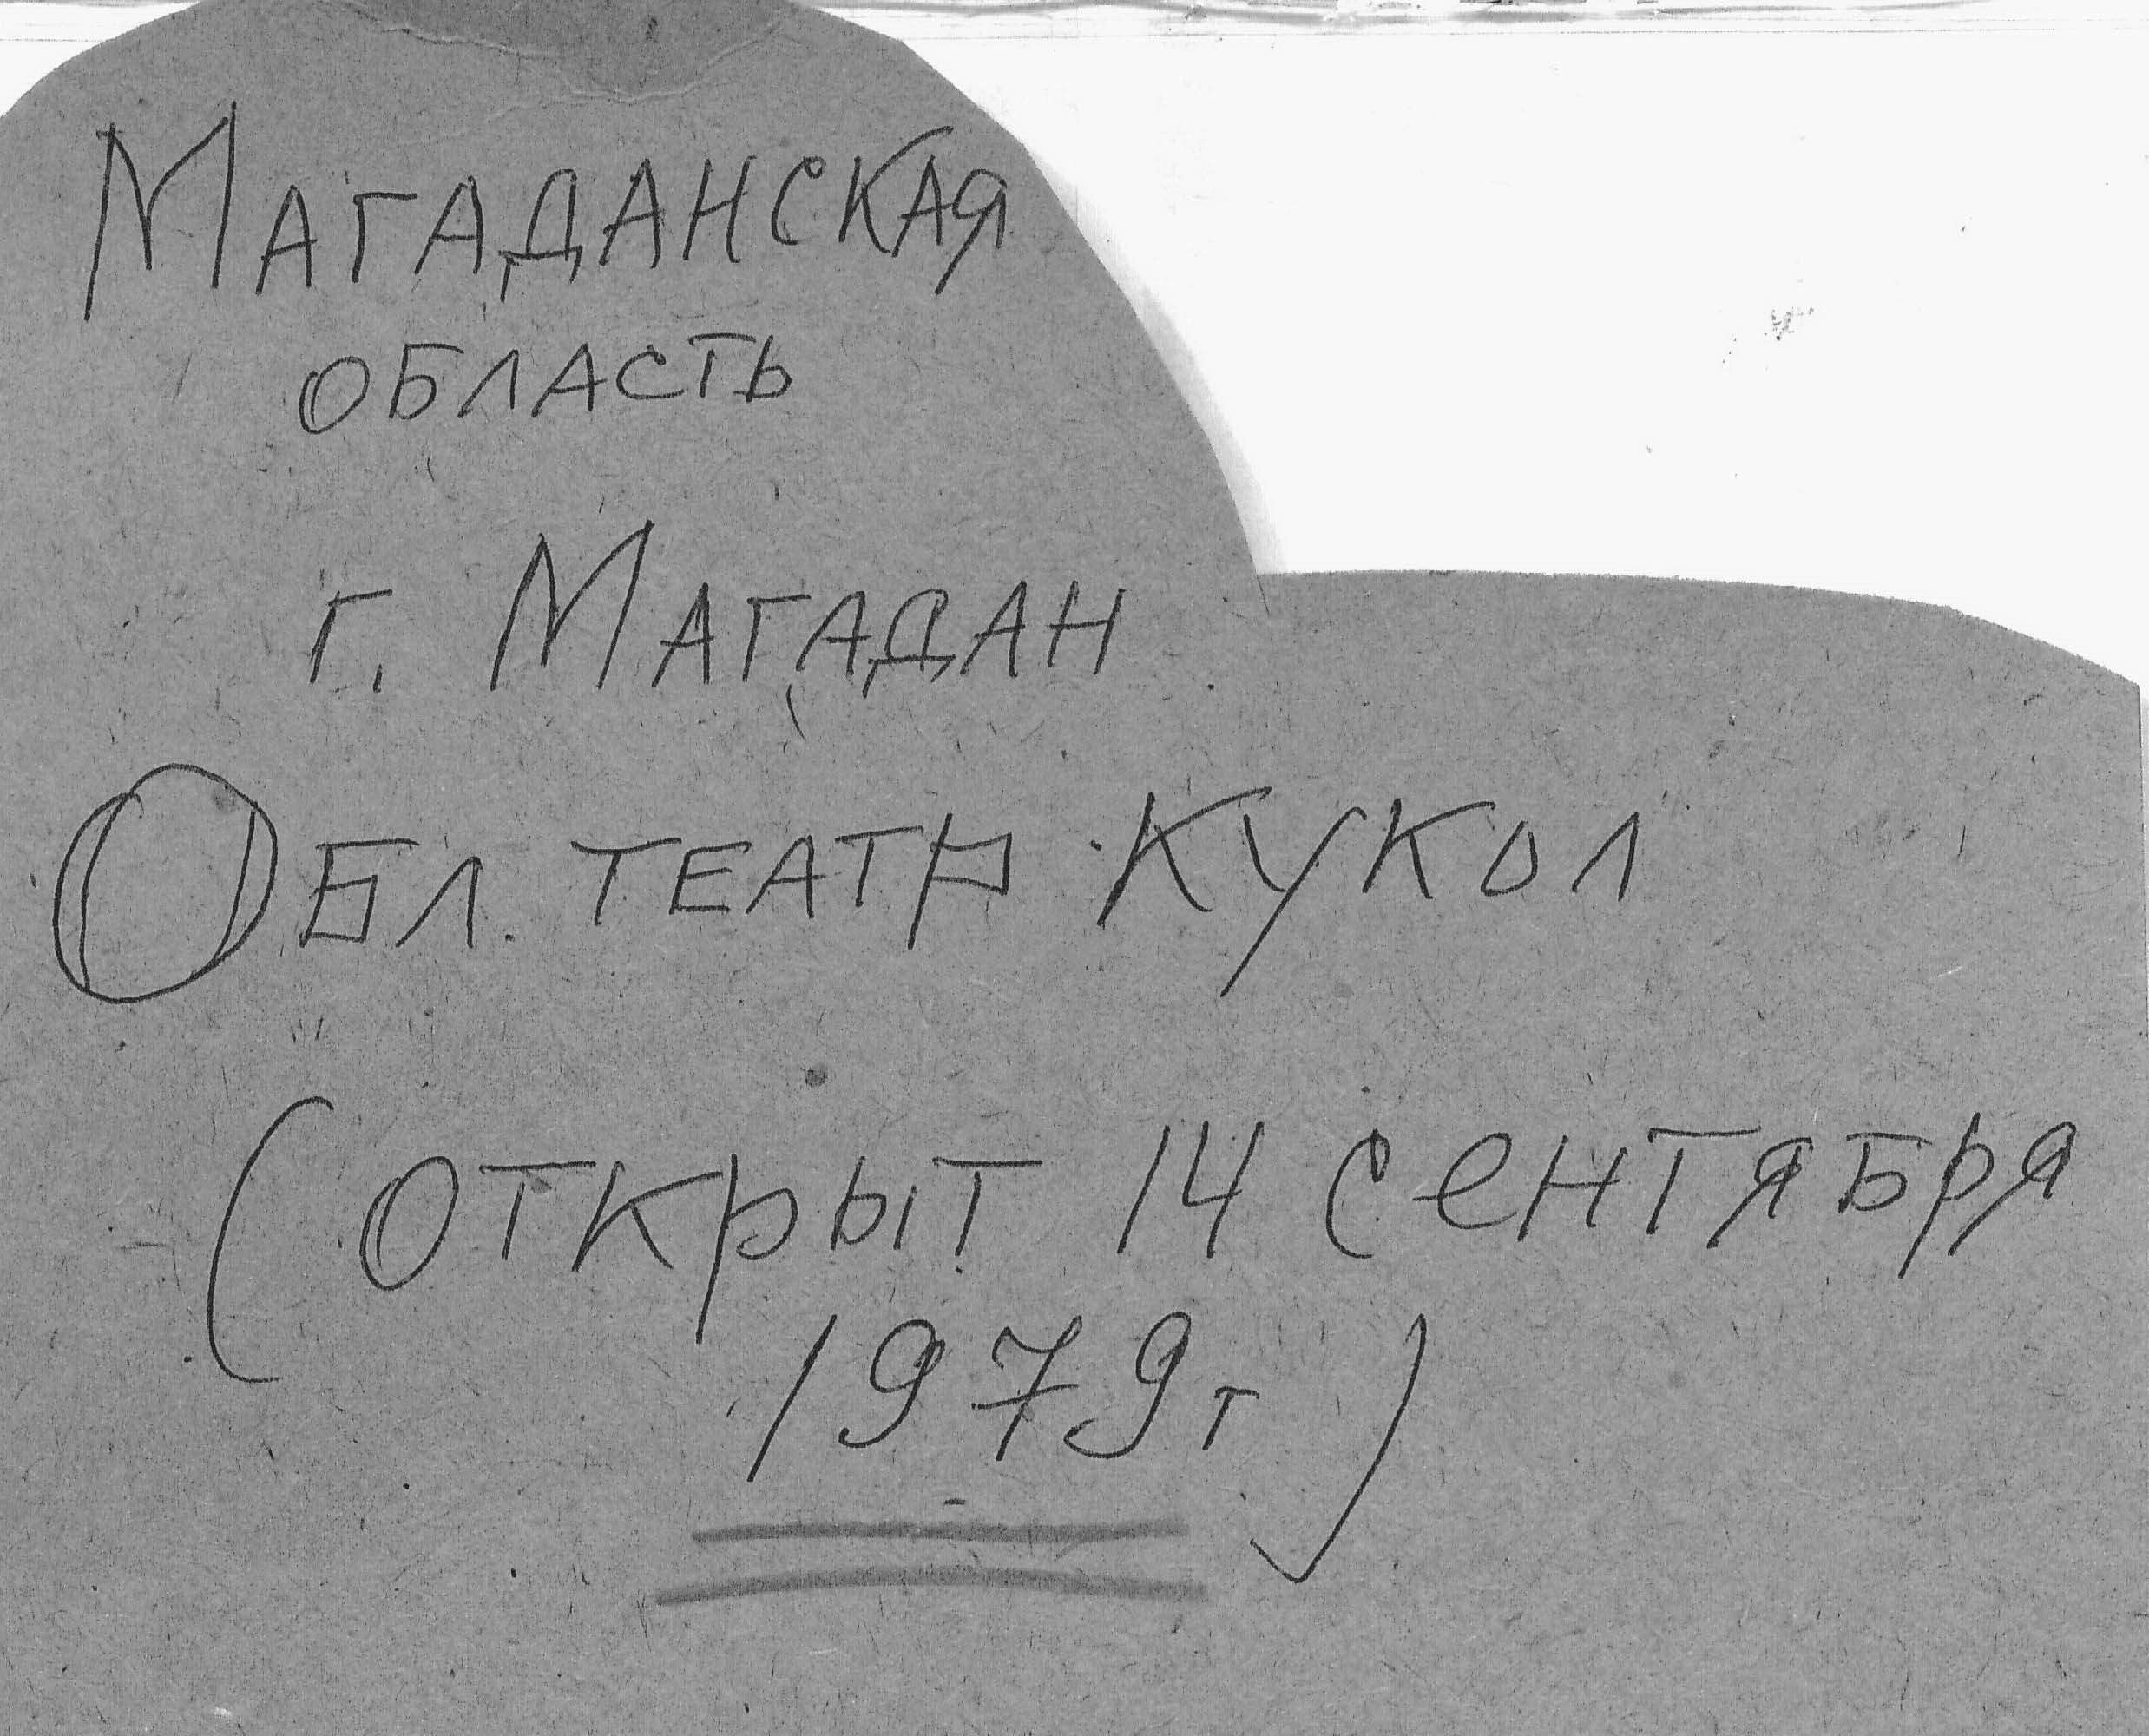 Магаданская
область
г. Магадан
Обл. театр кукол
(открыт 14 сентября
1979г)